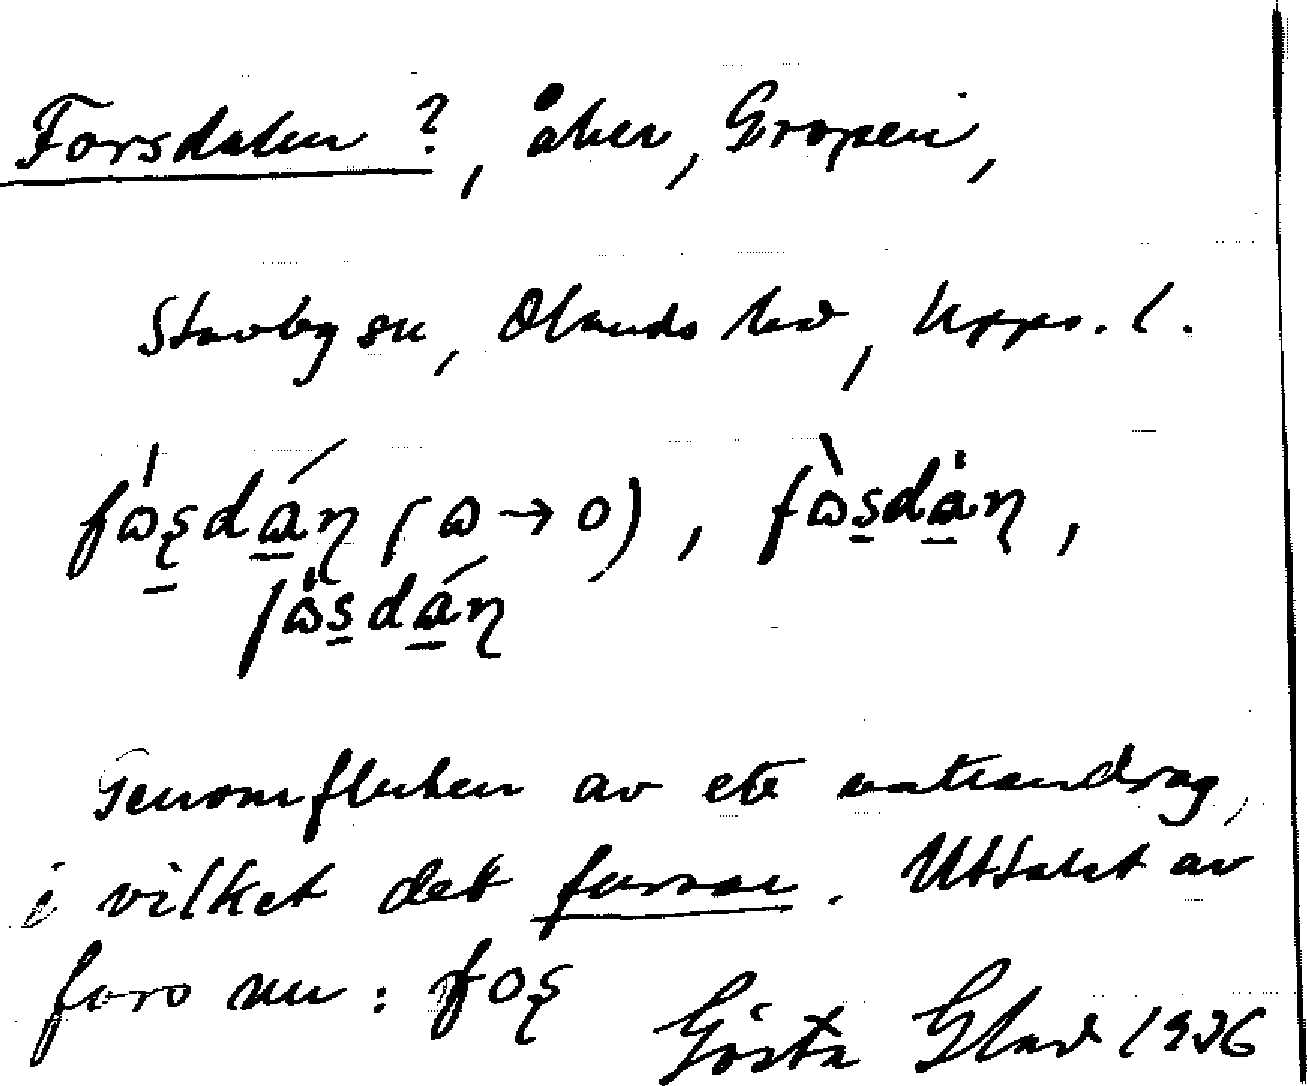 Forsdalen ?, åker, Gropen,
Stavby sn, Olands hd, Upps. l.
fɷ̀şdán (ɷ → o), fɷ̀sdàn,
fɷ̀sdán
Genomfluten av ett vattendrag,
i vilket det forsar. Uttalet av
fors nu: foş Gösta Glad 1936